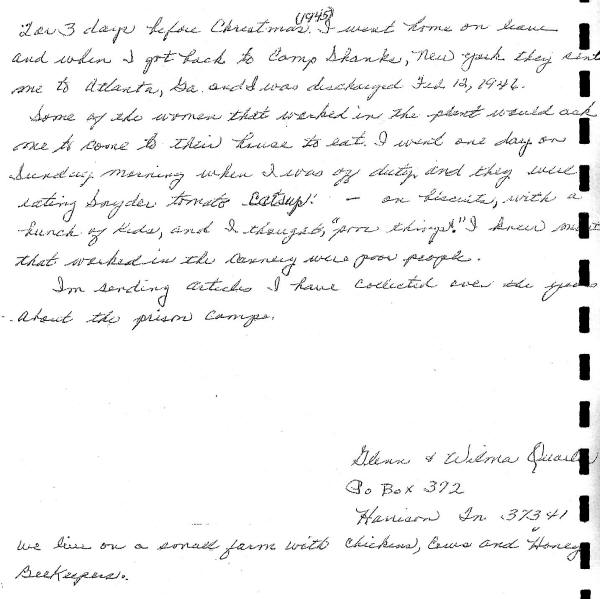 2 or 3 days before Christmas (1945) I went home on leave
and when I got back to Camp Shanks, New York they sent
me to Atlanta, Ga. and I was discharged Feb 12, 1946.
Some of the women that worked in the plant would ask
me to come to their house to eat. I went one day on
Sunday morning when I was of duty and they were
eating Snyder tomato Catsup! - on biscuits, with a
bunch of kids, and I thought, "poor things!" I knew most
that worked in the Cannery were poor people.
Im sending articles I have collected over the years
about the prison camps.
Glenn & Wilma
Po Box 372
Harrison Tn. 37341
We live on a small farm with chickens, Cows and "Honey
BeeKeepers.